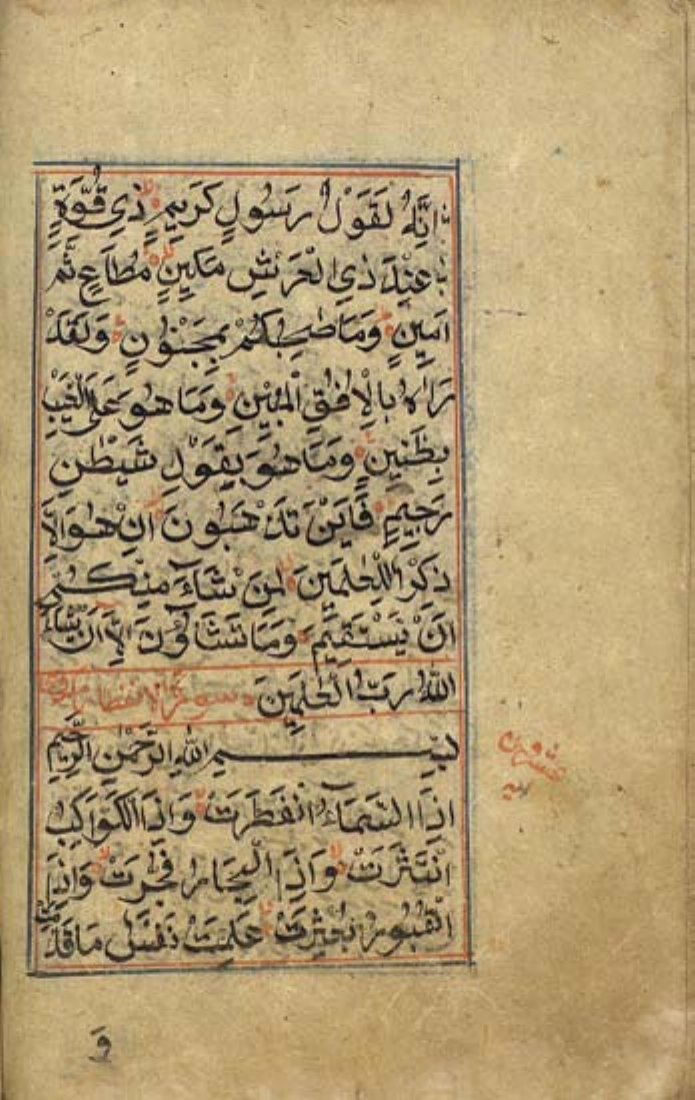 اِنَّهُ لَقَوْلُ رَسُولٍ كَرِيمٍ ذِي قُوَّةٍ
عِنْدَ ذِي الْعَرْشِ مَكِينٍ مُطَاعٍ ثَمَّ
اَمِينٍ وَمَا صَاحِبُكُمْ بِمَجْنُونٍ وَلَقَدْ
رَاٰهُ بِالْاُفُقِ الْمُبِينِ وَمَا هُوَ عَلَى الْغَيْبِ
بِظَنِينٍ وَمَا هُوَ بِقَوْلِ شَيْطٰنٍ
رَجِيمٍ فَاَيْنَ تَذْهَبُونَ اِنْ هُوَ اِلَّا
ذِكْرٌ لِلْعٰلَمِينَ لِمَنْ شَآءَ مِنْكُمْ
اَنْ يَسْتَقِيمَ وَمَا تَشَآؤُنَ اِلَّآ اَنْ يَشَآءَ
اللّٰهُ رَبُّ الْعٰلَمِينَ سورة الانفطار
بِسْمِ اللّٰهِ الرَّحْمٰنِ الرَّحِيمِ
اِذَا السَّمَآءُ انْفَطَرَتْ وَاِذَا الْكَوَاكِبُ
انْتَثَرَتْ وَاِذَا الْبِحَارُ فُجِّرَتْ وَاِذَا
الْقُبُورُ بُعْثِرَتْ عَلِمَتْ نَفْسٌ مَا قَدَّمَتْ
وَ